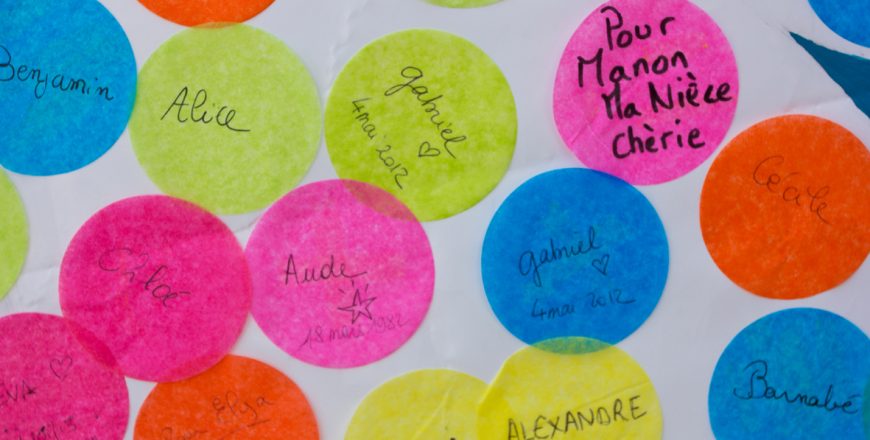 Benjamin
Alice
Gabriel
4 mai 2012
Pour
Manon
Ma Nièce
Chèrie
Cécile
Chloé
Aude
18 mai 1982
Gabriel
4 mai 2012
Barnabé
ALEXANDRE